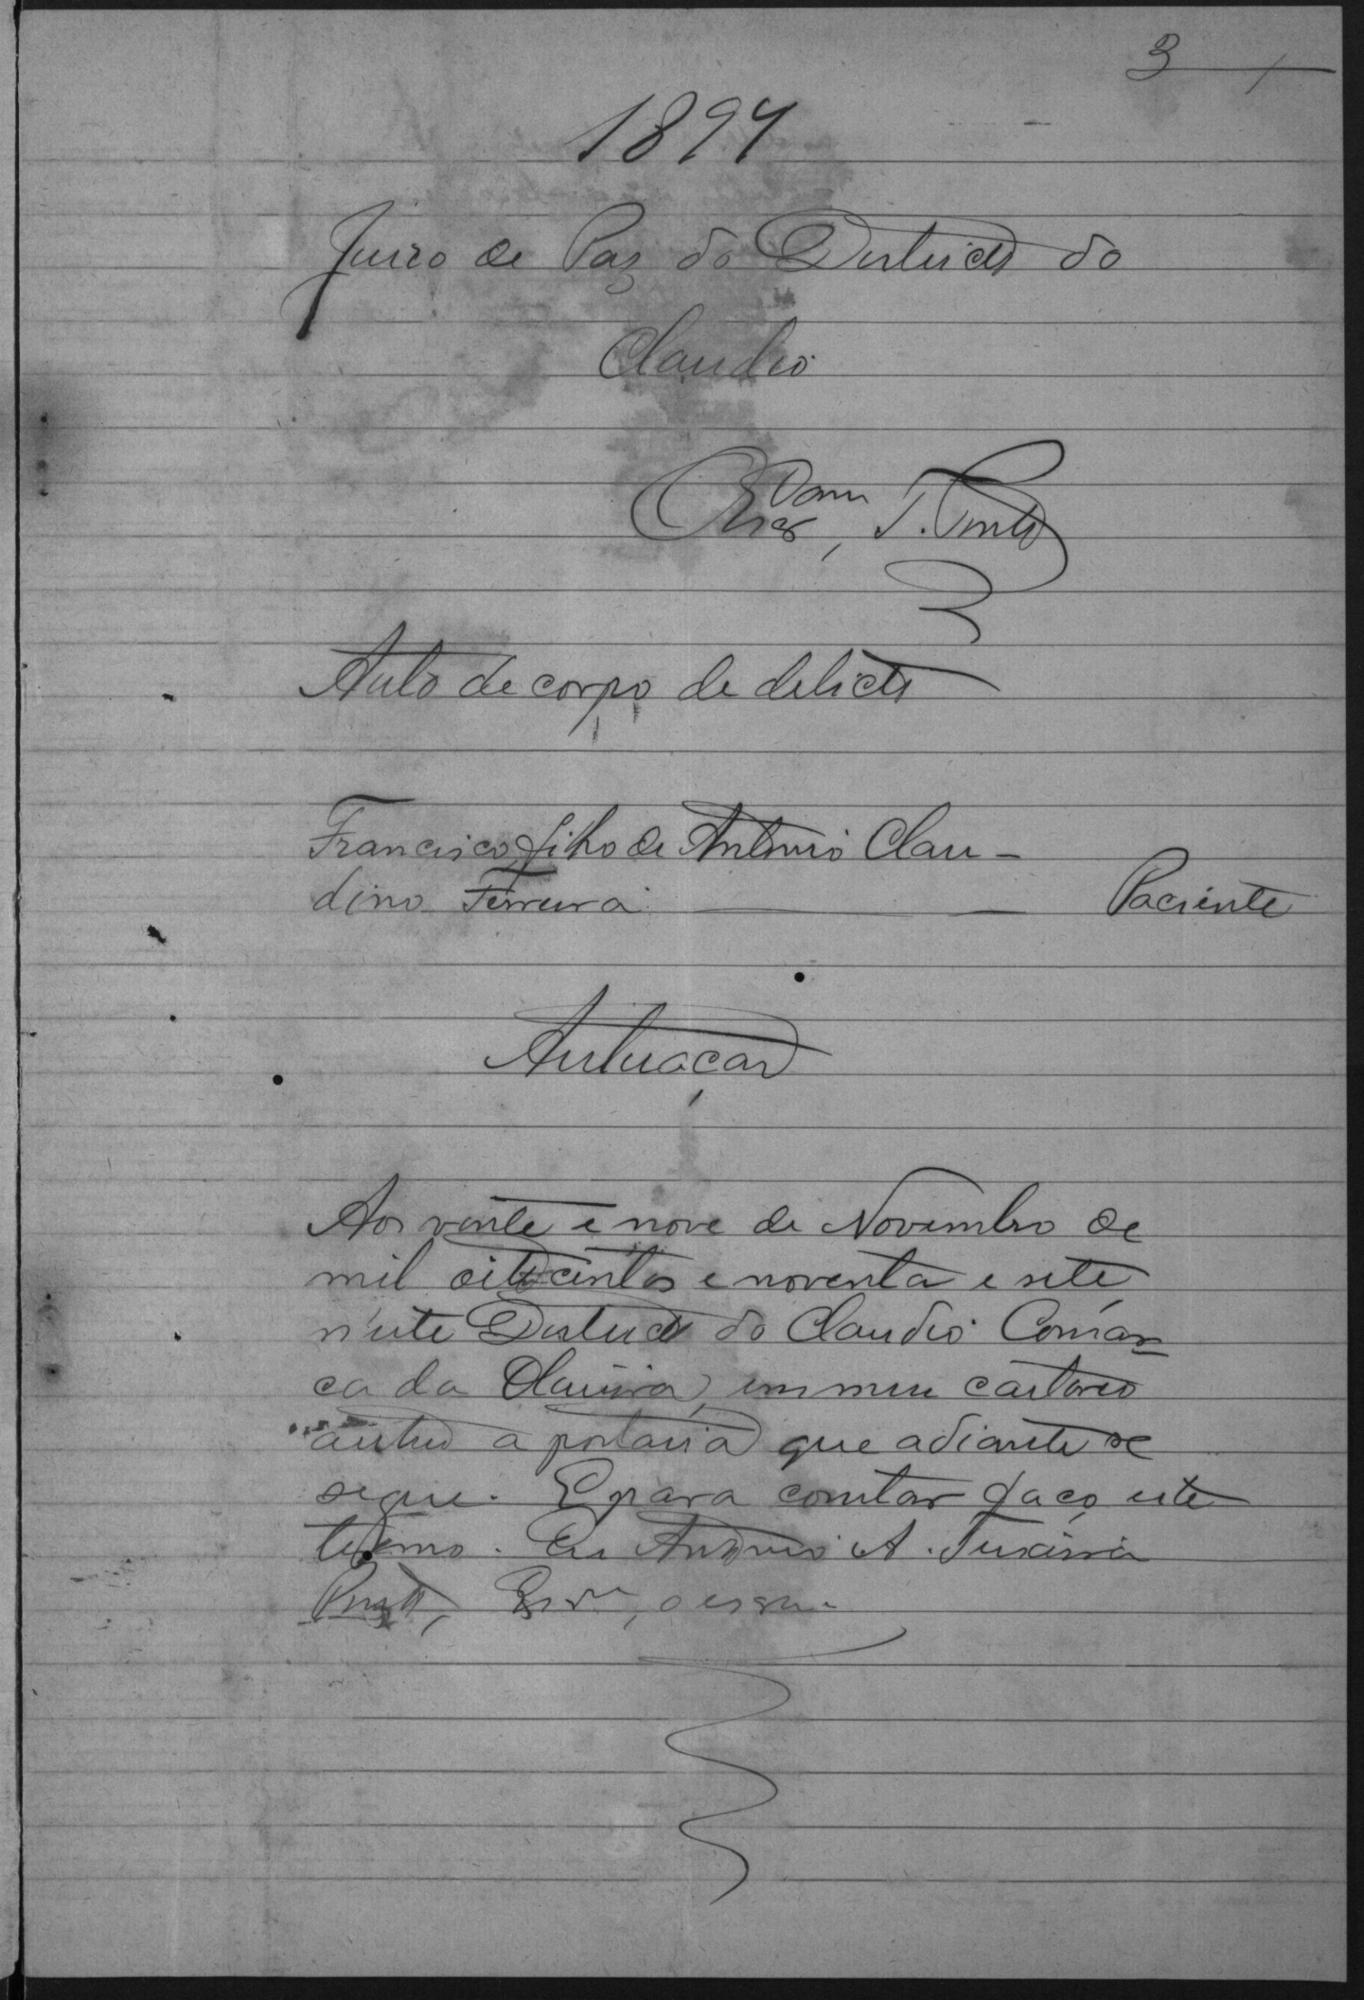 3
1897
Juizo de Paz do Districto do
Claudio
Escr, T. Pinto
Auto de corpo de delicto
Francisco filho de Antonio Clau-
dino Ferreira Paciente
Autuacao
Aos vinte e nove de Novembro de
mil oitocentos e noventa e sete
n'este Districto do Claudio Comar
ca da Oliveira, em meu cartorio
autuo a portaria que adiante se
segue. E para constar faço este
termo. Eu Antonio A. Teixeira
Pinto, Escrm, o escrevi